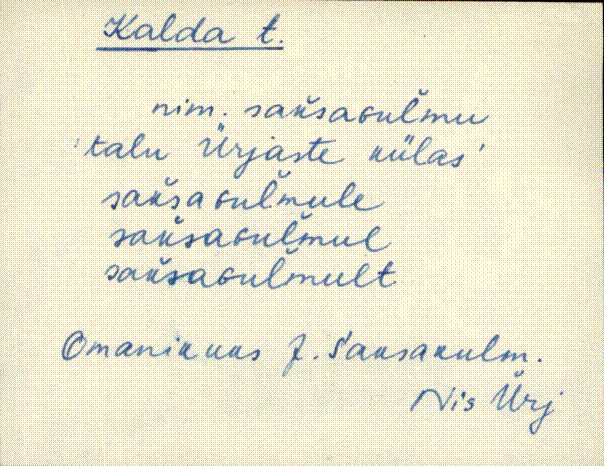 Kalda t.
nim. sak̆saɢul̆mu
'talu Ürjaste külas'
sak̆saɢul̆mule
sak̆saɢul̆mul
sak̆saɢul̆mult
Omanikuks J. Saksakulm.
Nis Ürj